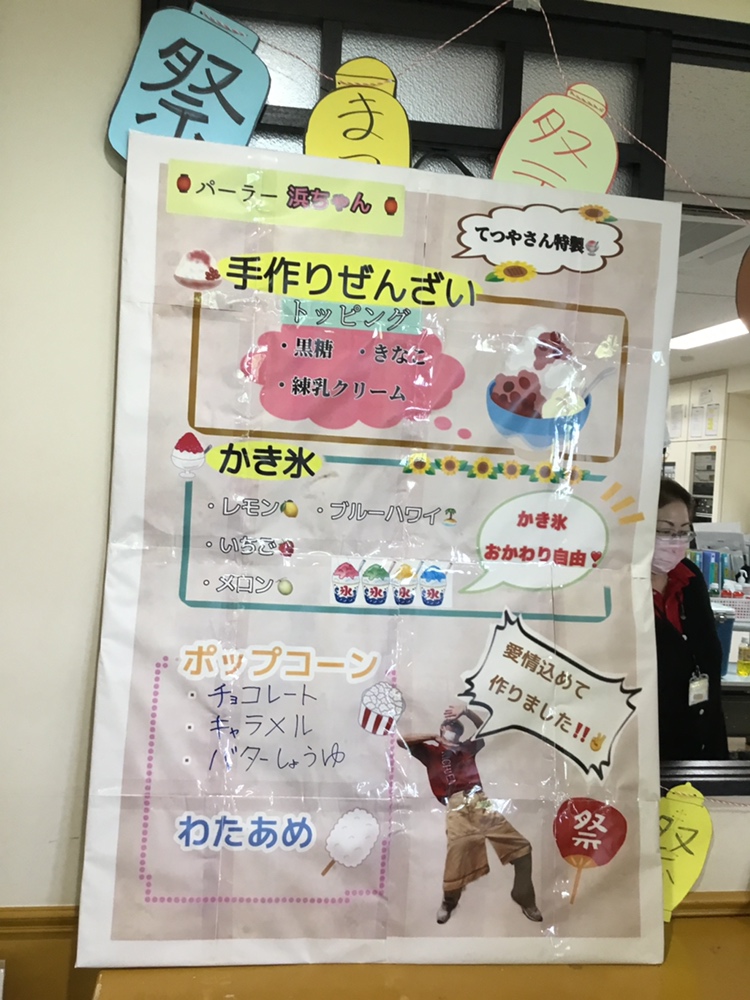 祭
まつ
祭
パーラー 浜ちゃん
てつやさん特製
手作りぜんざい
トッピング
・黒糖 ・きなこ
・練乳クリーム
かき氷
・レモン ・ブルーハワイ
・いちご
・メロン
かき氷
おかわり自由
氷 氷 氷 氷
ポップコーン
・チョコレート
・キャラメル
・バターしょうゆ
愛情込めて
作りました!!
わたあめ
祭
祭